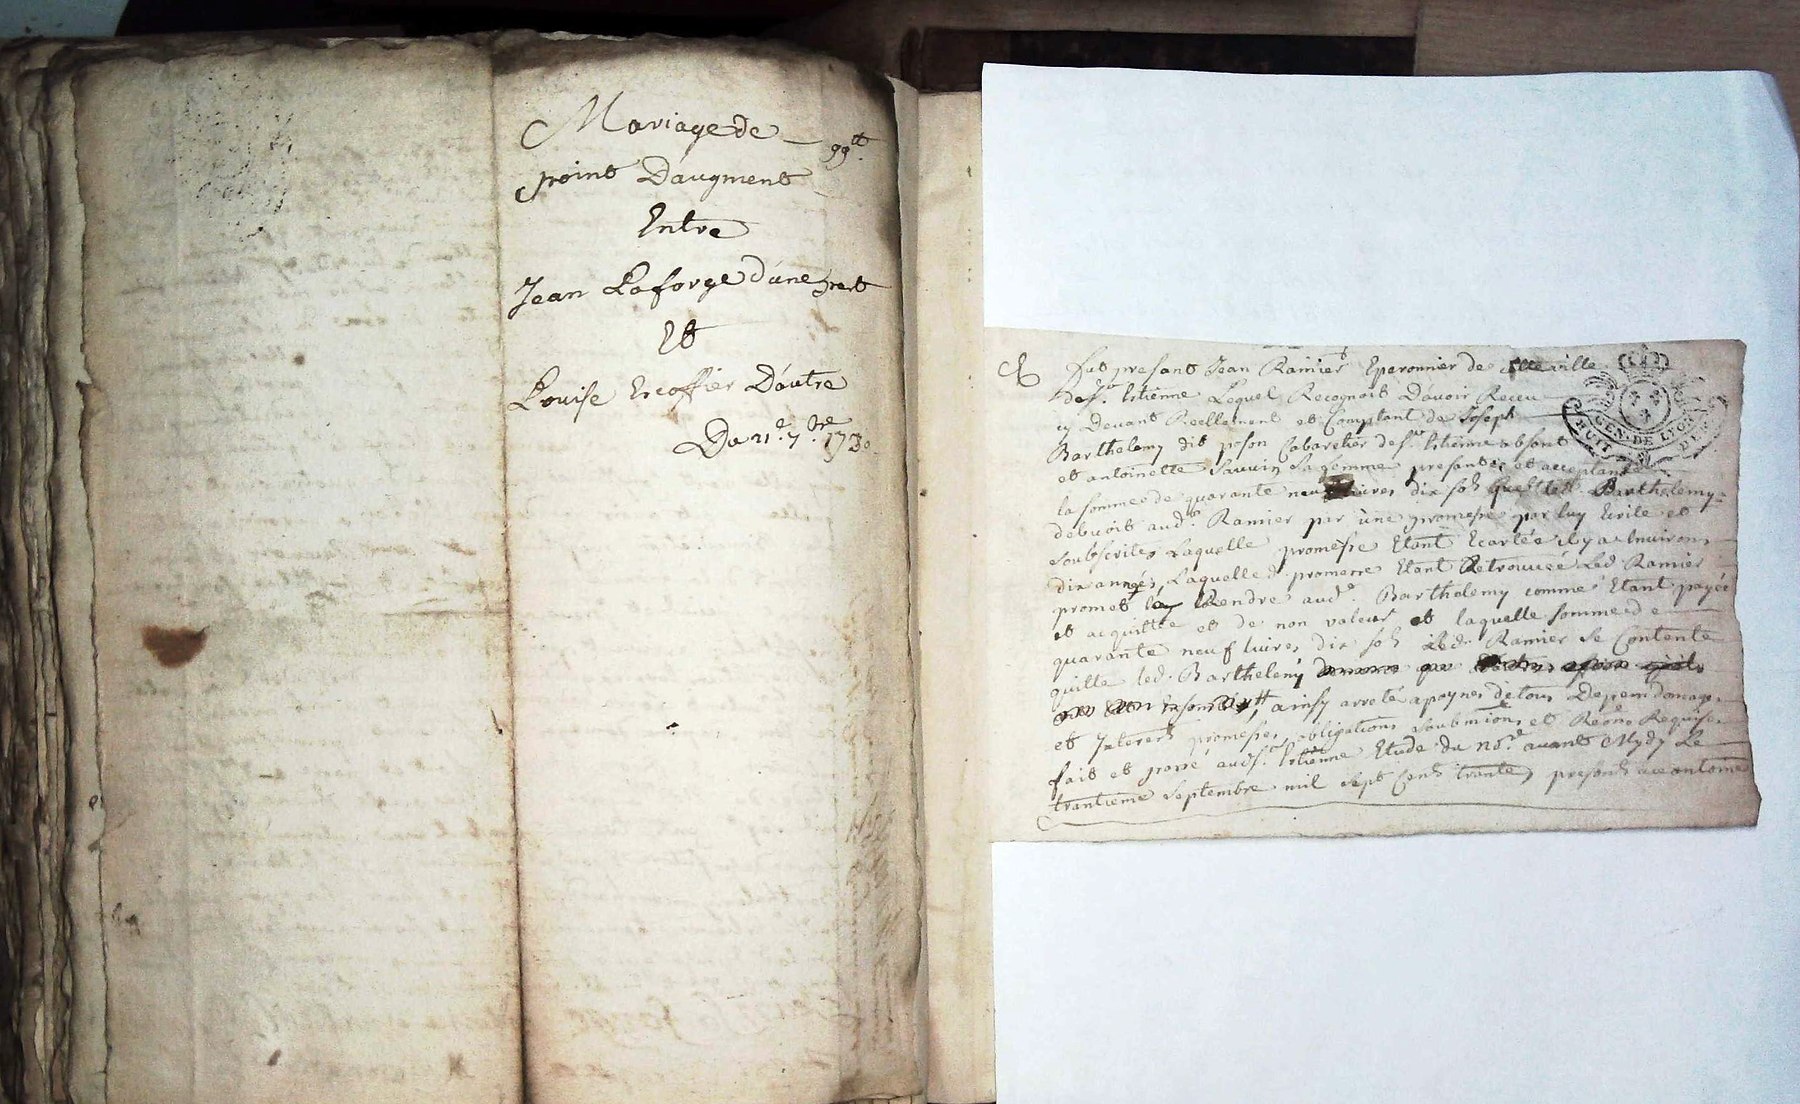 Mariage de
99tt
point D'augment
Entre
Jean Laforge d'une part
Et
Louise Escoffier D'autre
Du 21e 7bre 1730
Fut presant Jean Ramier Eperonnier de ville
de St. Etienne Lequel Recognoit D'avoir Receu
cy Devant Reellement et Comptant de Joseph
Barthelemy dit poson Cabaretier de St Etienne absent
et antoinette Sauvin sa femme presante et acceptante
la somme de quarante neuf livres dix sols Barthelemy
debvoit aud. Ramier par une promesse par luy Ecrite et
soubscrite, Laquelle promesse Etant Ecartée il y a Environ
dix années, Laquelle promesse Etant Retrouvée Led Ramier
promet Rendre aud. Barthelemy comme Etant payée
et acquitte et de non valeur et laquelle somme de
quarante neuf livres dix sols led. Ramier se Contente
quitte led. Barthelemy
ainsy arreté a paynes de tous Depens Domages
et Interets promesses, obligations, soubmions, et Reōn Requises
fait et passé aud St. Etienne Etude du nore. avant Mydy Le
trantieme septembre mil sept Cents trante, presents
GEN. DE LYON
HUIT DEN